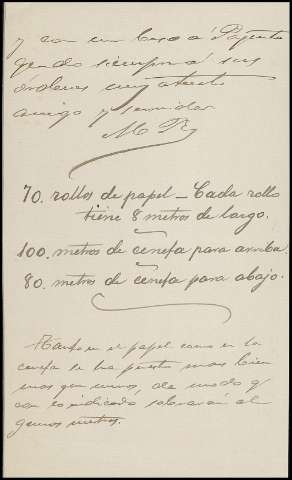 y con un beso a Pepita
quedo siempre a sus
órdenes muy atento
amigo y servidor
M P
70. rollos de papel – Cada rollo
tiene 8 metros de largo.
100. metros de cenefa para arriba.
80. metros de cenefa para abajo.
Tanto en el papel como en la
cenefa se ha puesto mas bien
mas que menos, de modo q
con lo indicado sobrarán al
gunos metros.